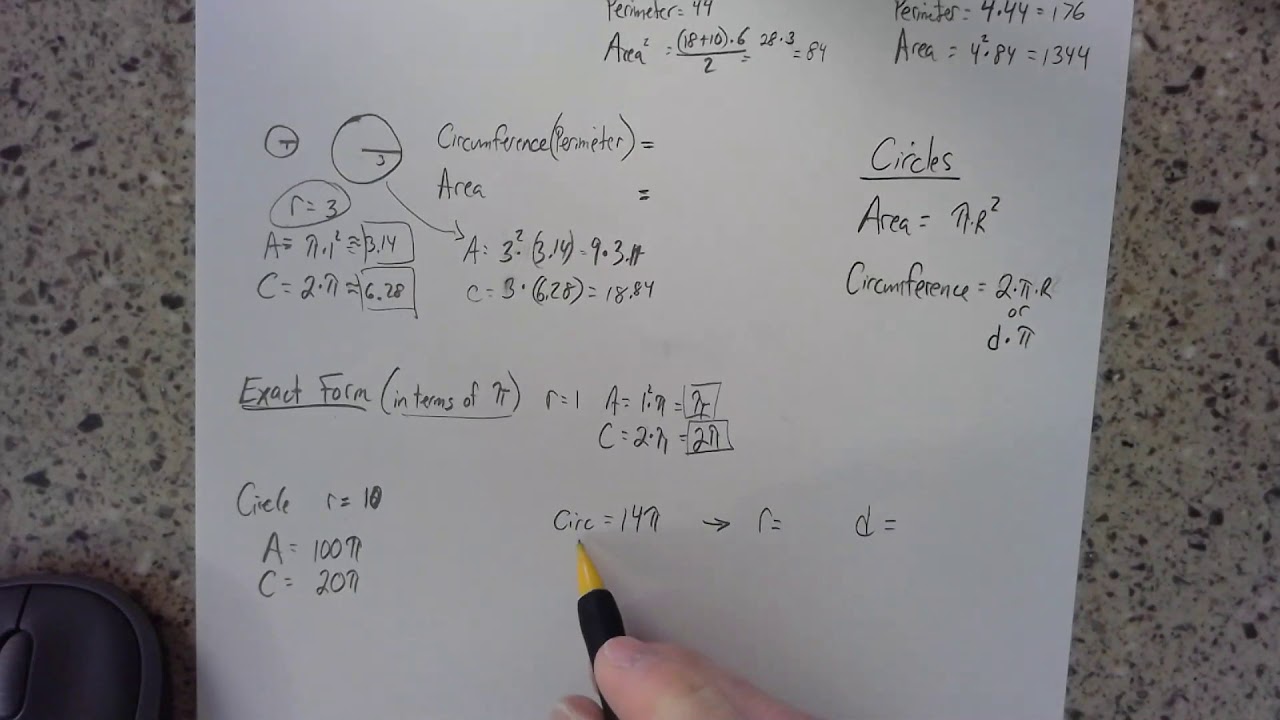 Perimeter = 44
Area² = (18+10)·6 / 2 = 28·3 = 84
Perimeter = 4·44 = 176
Area = 4²·84 = 1344
3
Circumference(Perimeter) =
Area =
r = 3
A = π·1² ≈ 3.14
C = 2·π ≈ 6.28
A = 3²·(3.14) = 9·3.14
C = 3·(6.28) = 18.84
Circles
Area = π·R²
Circumference = 2·π·R
or
d·π
Exact Form (in terms of π) r = 1 A = 1²·π = π
C = 2·π = 2π
Circle r = 10
A = 100π
C = 20π
Circ = 14π → r = d =